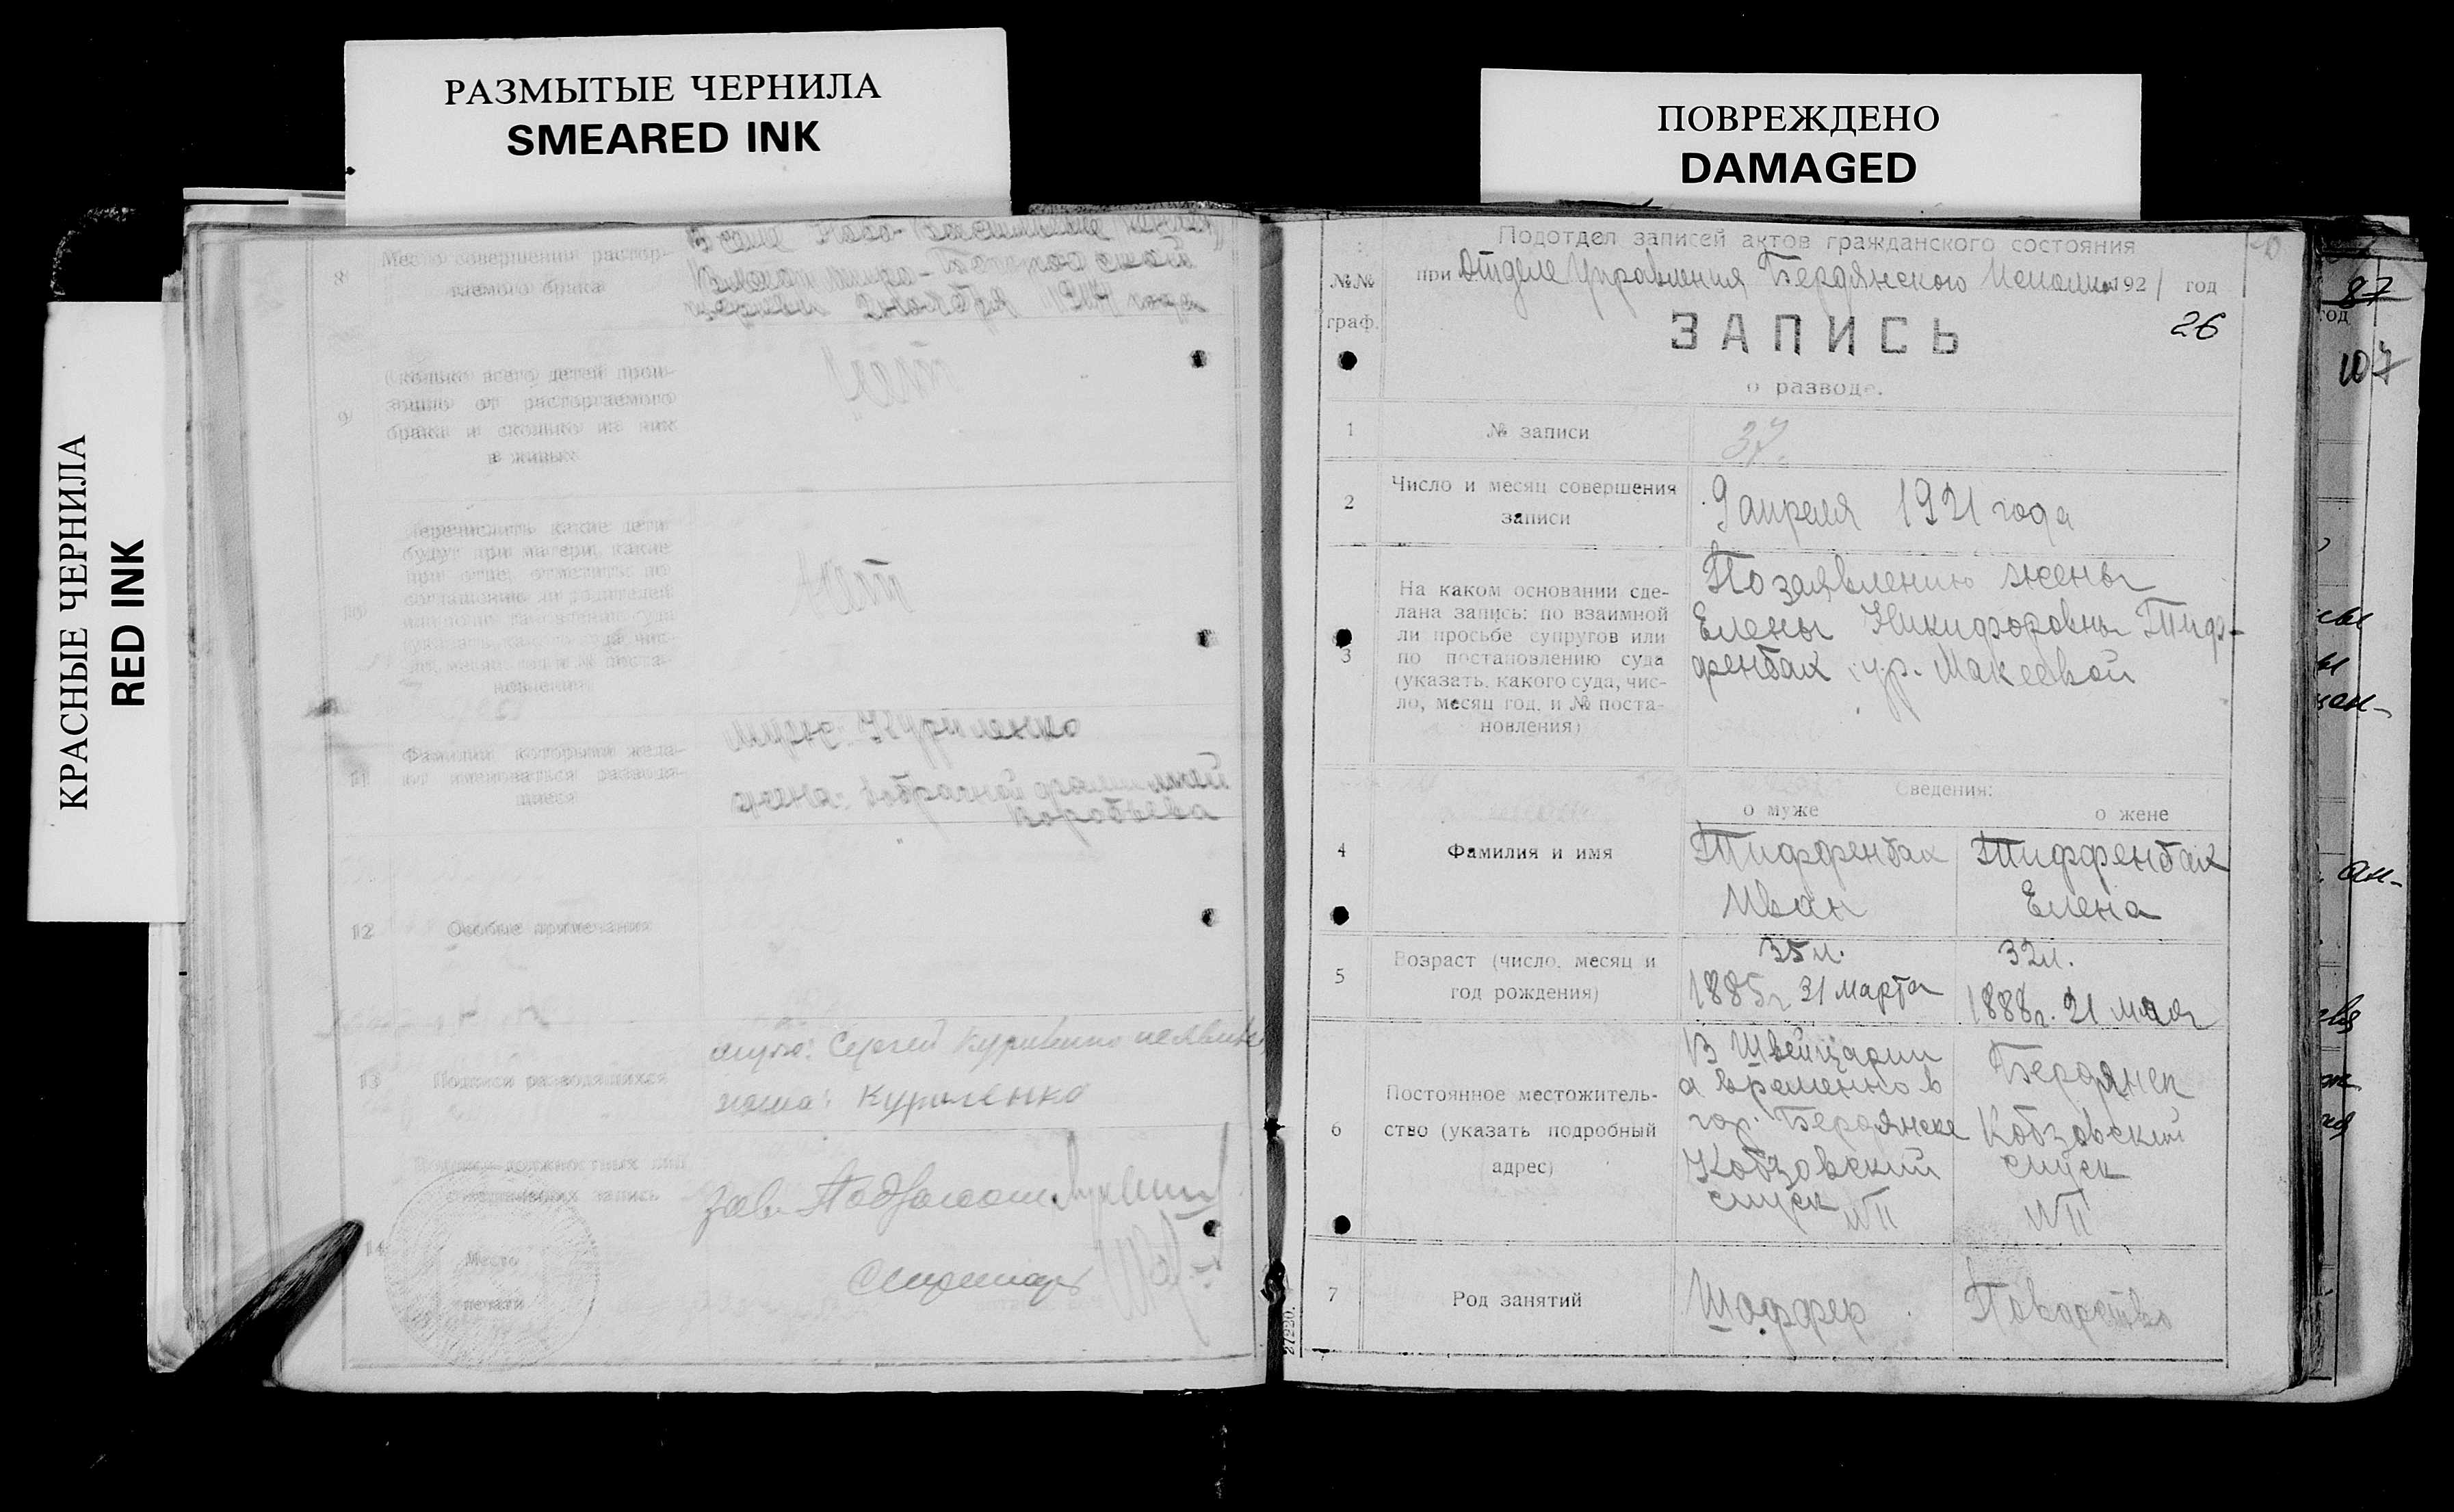 РАЗМЫТЫЕ ЧЕРНИЛА
SMEARED INK
ПОВРЕЖДЕНО
DAMAGED
КРАСНЫЕ ЧЕРНИЛА
RED INK
8
Место совершения растор-
гаемого брака
В селе
церкви 1917 года
9
Сколько всего детей прои-
зошло от расторгаемого
брака и сколько из них
в живых
Нет
Перечислить какие дети
будут при матери, какие
при отце, отметить: по
соглашению ли родителей
или по постановлению суда
(указать, какого суда, чис-
ло, месяц, год и № поста-
новления)
Нет
11
Фамилии, которыми жела-
ют именоваться разводя-
щиеся
Муж: Куриленко
жена: добрачной фамилией
Воробьева
12
Особые примечания
13
Подписи разводящихся
муж: Сергей Куриленко неявился
жена: Куриленко
Подписи должностных лиц
совершивших запись
14
Место
печати
Зав. Подзагсом
Секретарь
№№
граф.
Подотдел записей актов гражданского состояния
при Отделе Управления Бердянского Исполком 1921 год
26
ЗАПИСЬ
о разводе.
1
№ записи
37.
2
Число и месяц совершения
записи
9 апреля 1921 года
3
На каком основании сде-
лана запись: по взаимной
ли просьбе супругов или
по постановлению суда
(указать, какого суда, чис-
ло, месяц год, и № поста-
новления)
По заявлению жены
Елены Никифоровны Тиф-
фенбах ур. Макеевой
Сведения:
о муже
о жене
4
Фамилия и имя
Тиффенбах
Иван
Тиффенбах
Елена
5
Возраст (число, месяц и
год рождения)
35 л.
1885 г. 31 марта
32 л.
1888 г. 21 мая
6
Постоянное местожитель-
ство (указать подробный
адрес)
В Швейцарии
а временно в
гор. Бердянске
Кобзовский
спуск №11
Бердянск
Кобзовский
спуск
№11
7
Род занятий
Шоффер
Поварство
27220.
87
год
107